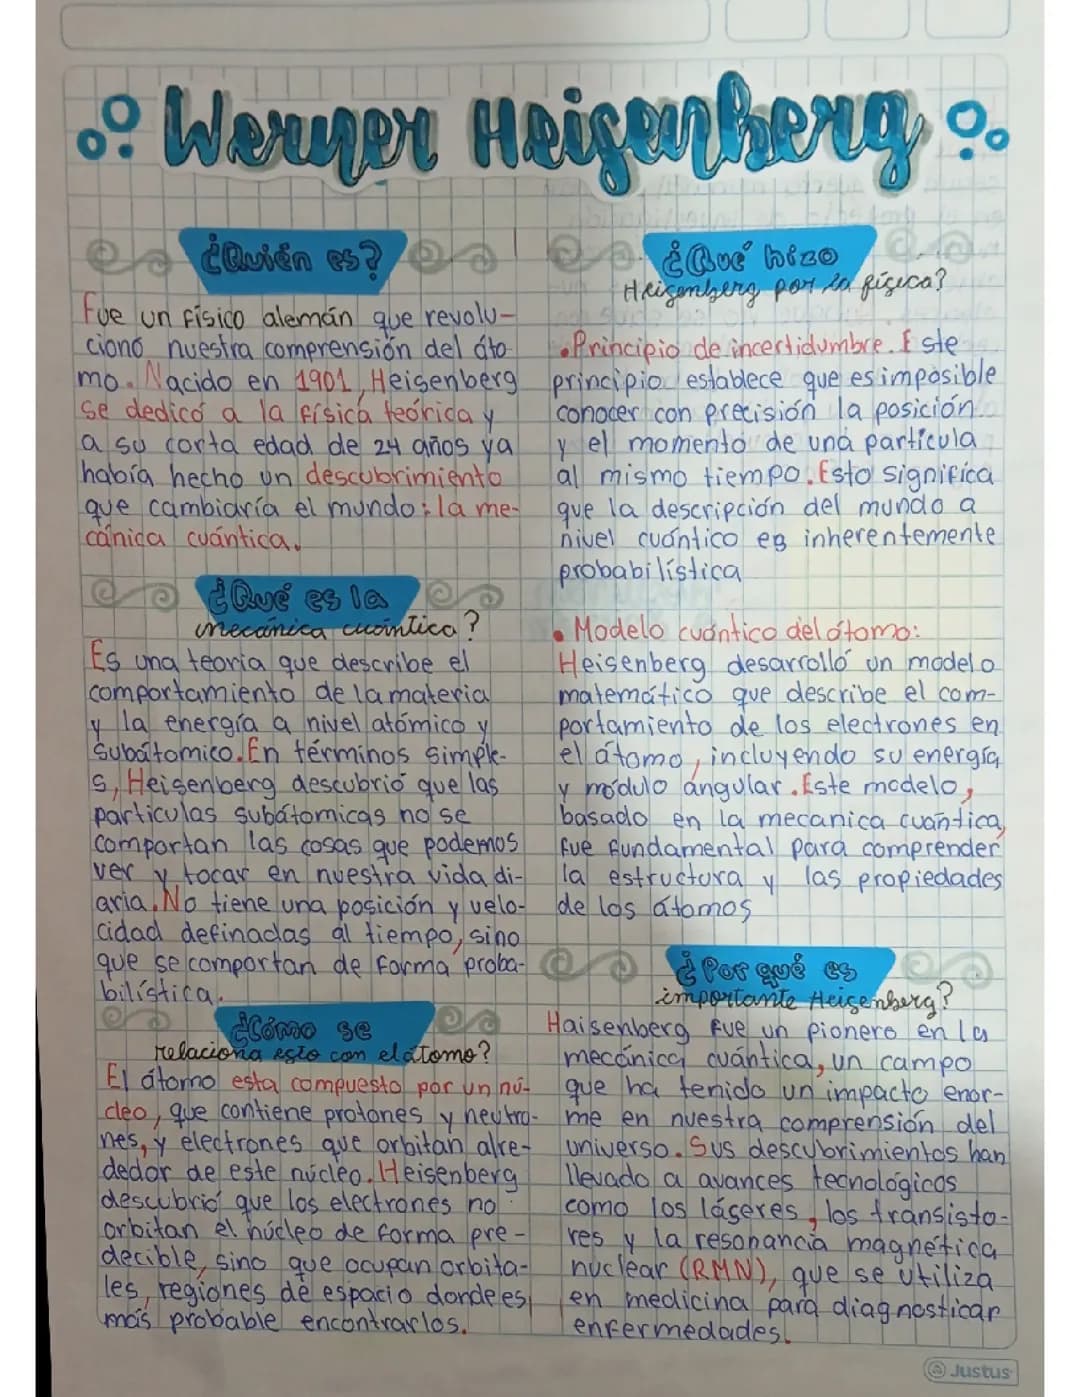 Werner Heisenberg
¿Quién es?
Fue un físico alemán que revolu-
cionó nuestra comprensión del áto-
mo. Nacido en 1901, Heisenberg
se dedicó a la física teórica y
a su corta edad de 24 años ya
había hecho un descubrimiento
que cambiaría el mundo: la me-
cánica cuántica.
¿Qué es la
mecánica cuántica?
Es una teoría que describe el
comportamiento de la materia
y la energía a nivel atómico y
subátomico. En términos simple-
s, Heisenberg descubrió que las
particulas subátomicas no se
comportan las cosas que podemos
ver y tocar en nuestra vida di-
aria. No tiene una posición y velo-
cidad definadas al tiempo, sino
que se comportan de forma proba-
bilística.
¿Cómo se
relaciona esto con el átomo?
El átomo esta compuesto por un nú-
cleo, que contiene protones y neutro-
nes, y electrones que orbitan alre-
dedor de este núcleo. Heisenberg
descubrió que los electrones no
orbitan el núcleo de forma pre-
decible, sino que ocupan orbita-
les, regiones de espacio donde es
más probable encontrarlos.
¿Qué hizo
Heisenberg por la física?
• Principio de incertidumbre. Este
principio establece que es imposible
conocer con precisión la posición
y el momento de una partícula
al mismo tiempo. Esto significa
que la descripción del mundo a
nivel cuántico es inherentemente
probabilística
• Modelo cuántico del átomo:
Heisenberg desarrolló un modelo
matemático que describe el com-
portamiento de los electrones en
el átomo, incluyendo su energía
y módulo angular. Este modelo,
basado en la mecanica cuántica,
fue fundamental para comprender
la estructura y las propiedades
de los átomos
¿Por qué es
importante Heisenberg?
Haisenberg fue un pionero en la
mecánica cuántica, un campo
que ha tenido un impacto enor-
me en nuestra comprensión del
universo. Sus descubrimientos han
llevado a avances tecnológicos
como los láseres, los transisto-
res y la resonancia magnética
nuclear (RMN), que se utiliza
en medicina para diagnosticar
enfermedades.
Justus